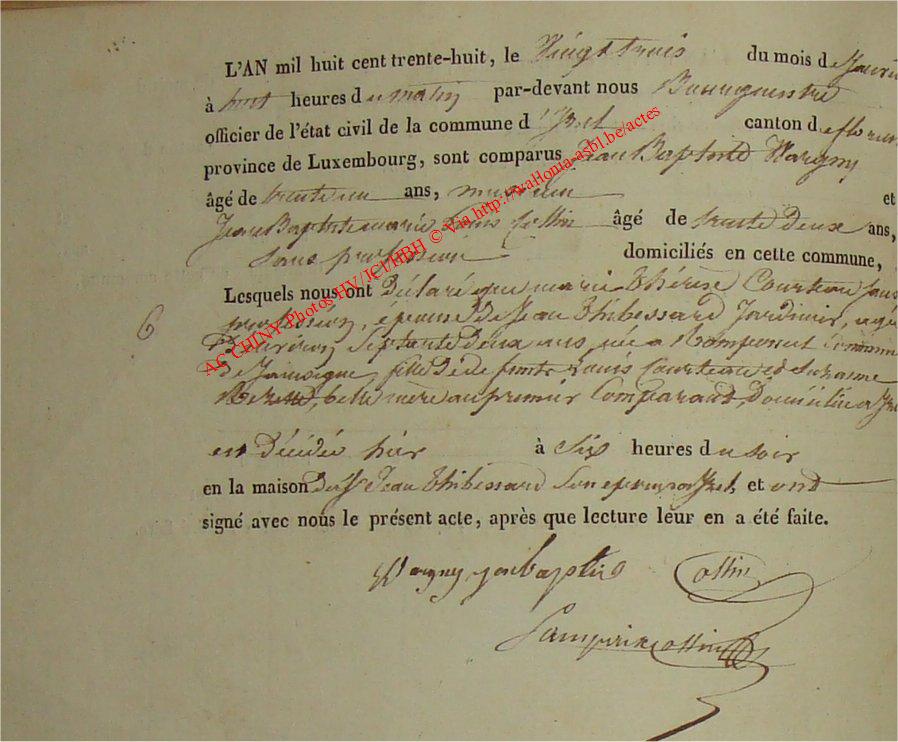 L'AN mil huit cent trente-huit, le Vingt trois du mois de Janvi
à huit heures du matin par-devant nous Bourguemestre
officier de l'état civil de la commune d'Izel canton de floren
province de Luxembourg, sont comparus Jean Baptiste Wavigny
âgé de trente un ans, et
Jean Baptiste marie Collin âgé de trente Deux ans,
sans profession domiciliés en cette commune,
Lesquels nous ont Déclaré que marie thérèse Courteau sans
6
profession, épouse de Jean thibessard Jardinier, agé
D'environ Septante Deux ans, née a Romponcel Commun
de Jamoigne, fille de defunts Louis Courteau et Suzanne
belle mère au premier Comparand, Domiciliée a Izel
est Décédée hier à Six heures du soir
en la maison Du Sr Jean thibessard Son epoux a Izel, et ont
signé avec nous le présent acte, après que lecture leur en a été faite.
jean baptis Collin
AC CHINY Photos HV/JCl/HBH © Via http://wallonia-asbl.be/actes